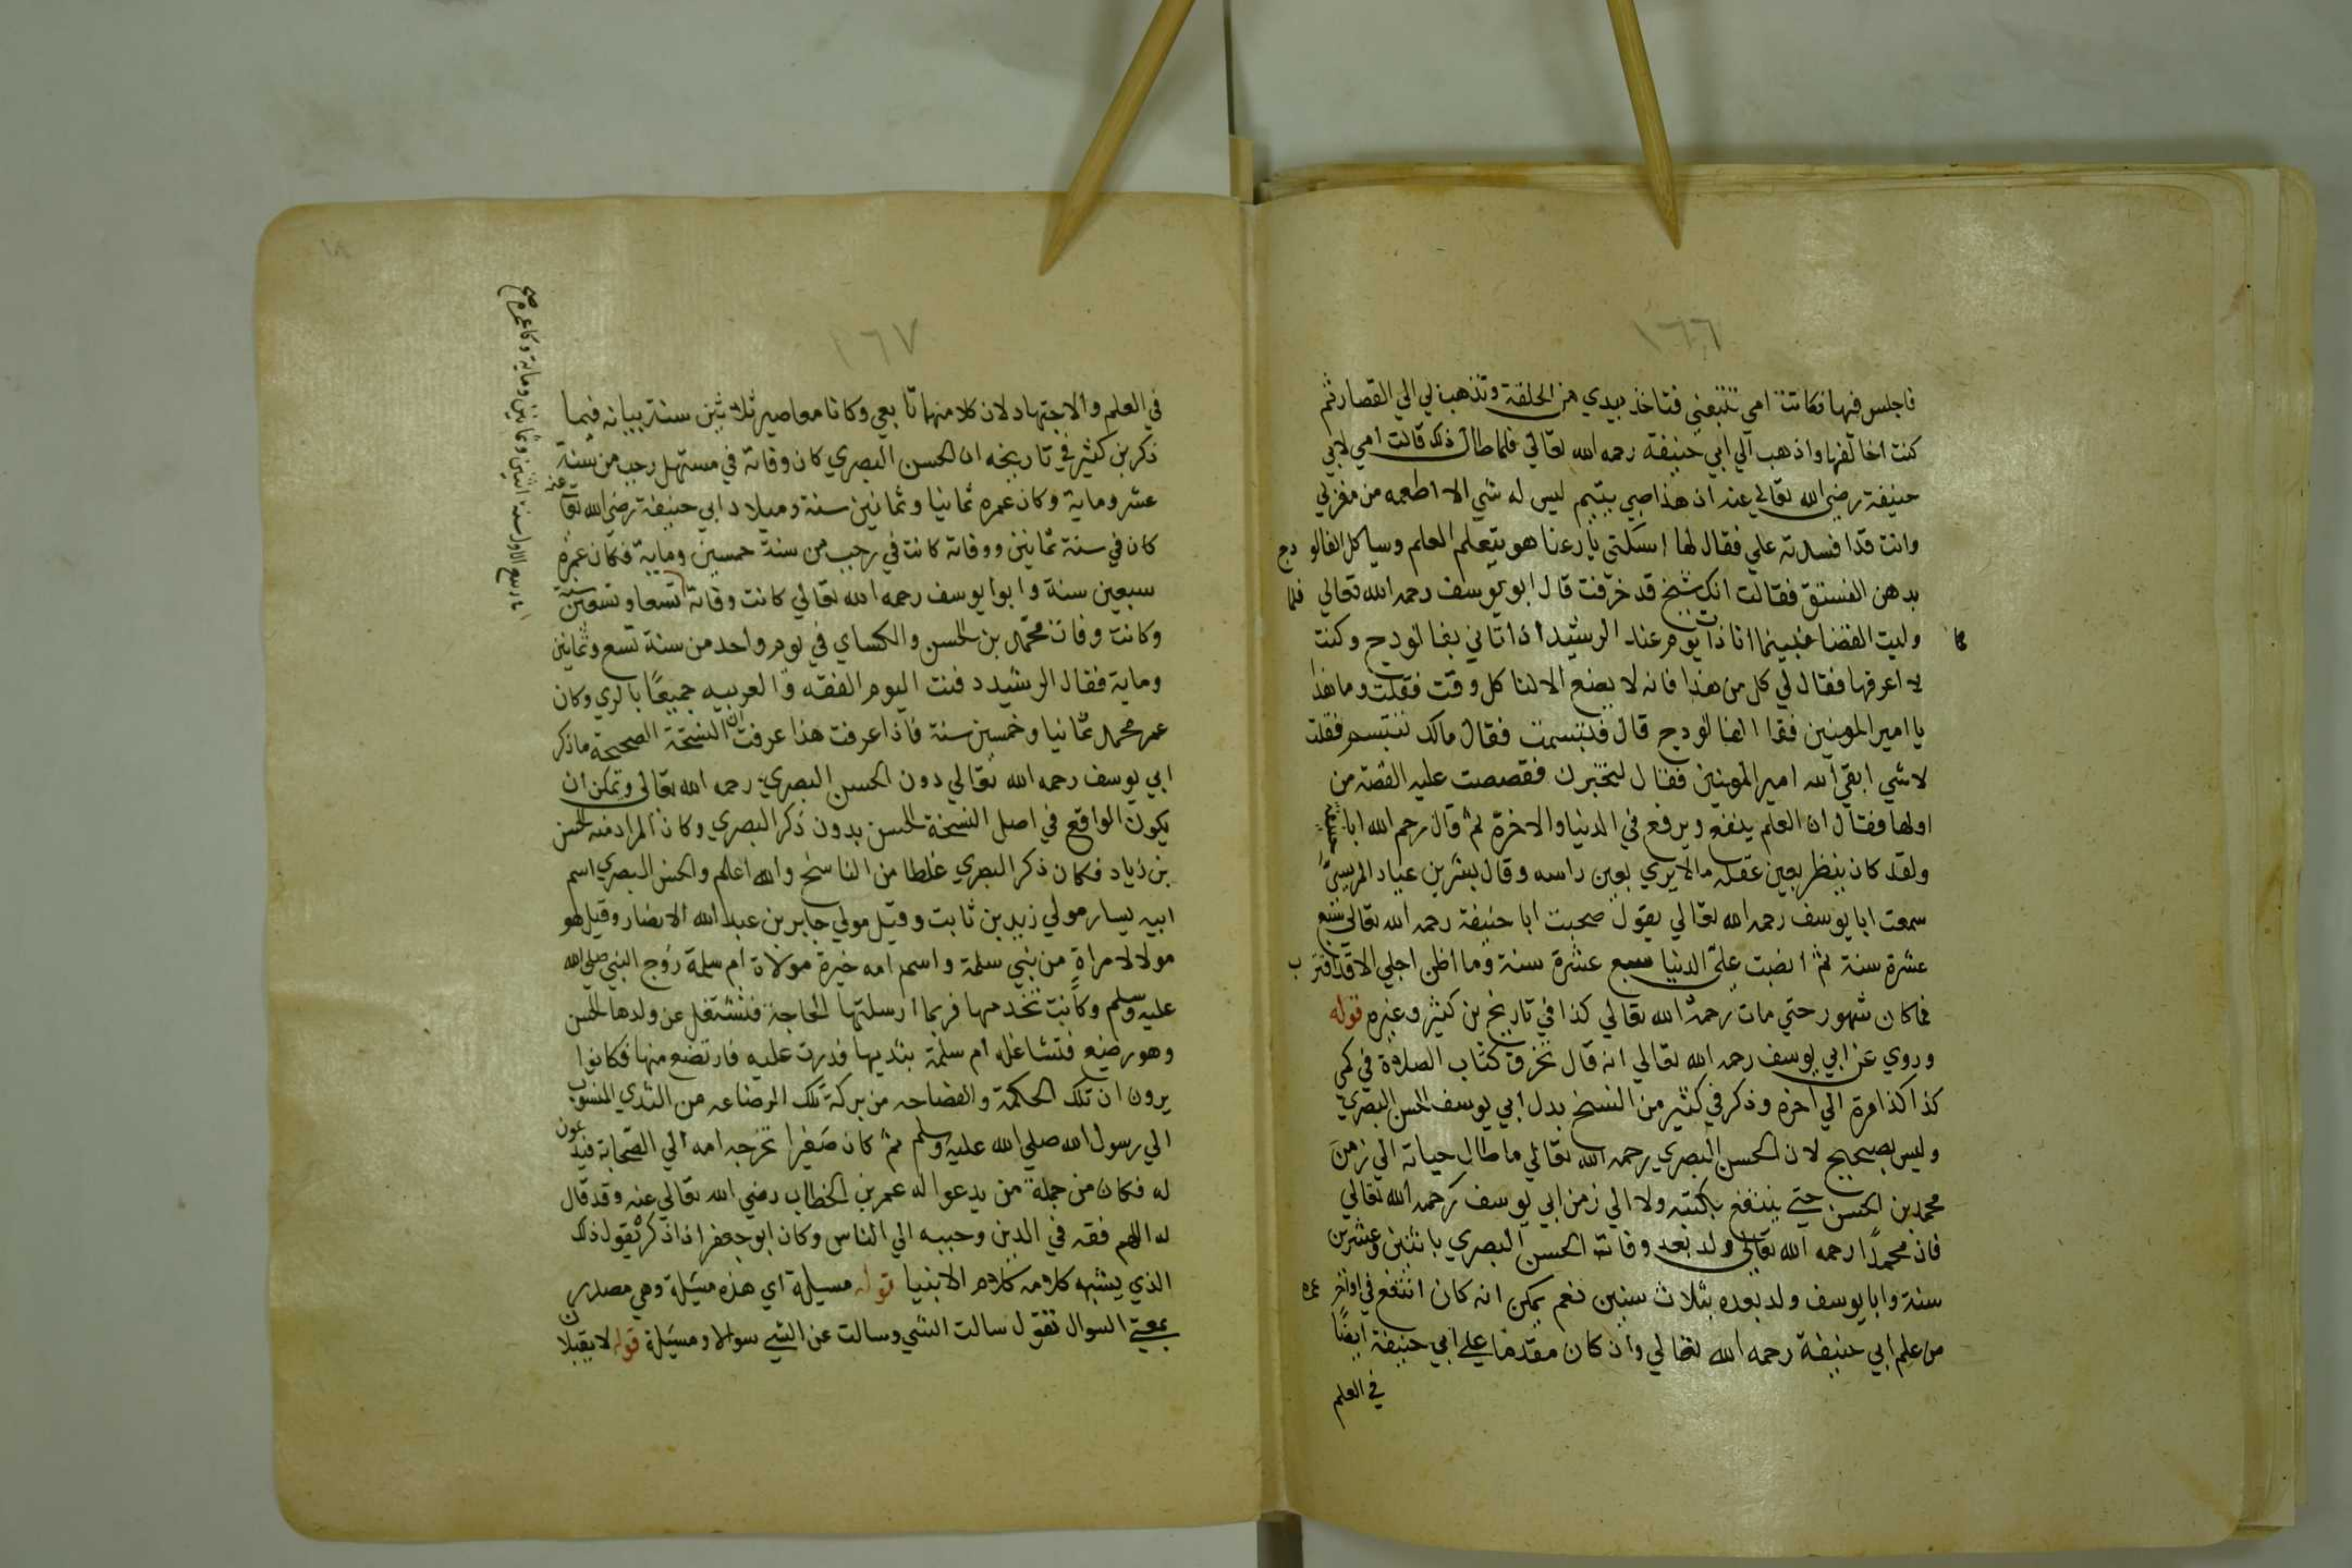 ١٦٦
فاجلس فيها فكانت امي تتبعني فتاخذ بيدي من الحلقة وتذهب بي الي القصار ثم
كنت اخالفها واذهب الي ابي حنيفة رحمه الله تعالي فلما طال ذلك قالت امي لابي
حنيفة رضي الله تعالي عنه ان هذا صبي يتيم ليس له شي الا اطعمه من مغزلي
وانت قد افسدته علي فقال لها اسكتي يا رعنا هو يتعلم العلم وسياكل الفالودج
بدهن الفستق فقالت انك شيخ قد خرفت قال ابو يوسف رحمه الله تعالي فلما
وليت القضا فبينما انا ذات يوم عند الرشيد اذ اتاني بفالودج وكنت
لا اعرفها فقال لي كل من هذا فانه لا يصنع الا لنا كل وقت فقلت وما هذا
يا امير المومنين فقال الفالودج قال فتبسمت فقال مالك تتبسم فقلت
لا شي ابقي الله امير المومنين فقال لتخبرن فقصصت عليه القصة من
اولها فقال ان العلم ينفع ويرفع في الدنيا والاخرة ثم قال رحم الله ابا حنيفة
ولقد كان ينظر بعين عقله ما لا يري بعين راسه وقال بشر بن غياد المريسي
سمعت ابا يوسف رحمه الله تعالي يقول صحبت ابا حنيفة رحمه الله تعالي سبع
عشرة سنة ثم انصبت علي الدنيا سبع عشرة سنة وما اظن اجلي الا قد اقترب
فما كان شهور حتي مات رحمه الله تعالي كذا في تاريخ بن كثير وغيره قوله
وروي عن ابي يوسف رحمه الله تعالي انه قال تخرق كتاب الصلاة في كمي
كذا كذا مرة الي اخره وذكر في كثير من النسخ بدل ابي يوسف الحسن البصري
وليس بصحيح لان الحسن البصري رحمه الله تعالي ما طال حياته الي زمن
محمد بن الحسن حتي ينتفع بكتبه ولا الي زمن ابي يوسف رحمه الله تعالي
فان محمدًا رحمه الله تعالي ولد بعد وفاة الحسن البصري باثنين وعشرين
سنة وابا يوسف ولد بعده بثلاث سنين نعم يمكن انه كان انتفع في اواخر عمره
من علم ابي حنيفة رحمه الله تعالي وان كان مقدما علي ابي حنيفة ايضًا
في العلم
١٦٧
في العلم والاجتهاد لان كلا منهما تابعي وكانا معاصير ثلاثين سنة بيانه فيما
ذكر بن كثير في تاريخه ان الحسن البصري كان وفاته في مستهل رجب من سنة
عشر وماية وكان عمره ثمانيا وثمانين سنة وميلاد ابي حنيفة رضي الله تعا عنه
كان في سنة ثمانين ووفاته كانت في رجب من سنة خمسين وماية فكان عمره
سبعين سنة وابوا يوسف رحمه الله تعالي كانت وفاته تسعا وتسعين سنة
وكانت وفات محمد بن الحسن والكساي في يوم واحد من سنة تسع وثمانين
وماية فقال الرشيد دفنت اليوم الفقه والعربيه جميعًا بالري وكان
عمر محمد ثمانيا وخمسين سنة فاذا عرفت هذا عرفت ان النسخة الصحيحة ما ذكر
ابي يوسف رحمه الله تعالي دون الحسن البصري رحمه الله تعالي ويمكن ان
يكون الواقع في اصل النسخة الحسن بدون ذكر البصري وكان المراد منه الحسن
بن زياد فكان ذكر البصري غلطا من الناسخ والله اعلم والحسن البصري اسم
ابيه يسار مولي زيد بن ثابت وقيل مولي جابر بن عبد الله الانصار وقيل هو
مولا لامراة من بني سلمة واسم امه خيرة مولاة ام سلمة زوج النبي صلي الله
عليه وسلم وكانت تخدمها فربما ارسلتها الحاجة فتشتغل عن ولدها الحسن
وهو رضيع فتشاغله ام سلمة بثديها فدرت عليه فارتضع منها فكانوا
يرون ان تلك الحكمة والفصاحه من بركة تلك الرضاعه من الثدي المنسوب
الي رسول الله صلي الله عليه وسلم ثم كان صغيرا تخرجه امه الي الصحابة فيدعون
له فكان من جملة من يدعوا له عمر بن الخطاب رضي الله تعالي عنه وقد قال
له اللهم فقه في الدين وحببه الي الناس وكان ابو جعفر اذا ذكر يقول ذلك
الذي يشبه كلامه كلام الانبيا قوله مسيلة اي هذه مسئلة وهي مصدر
بمعني السوال تقول سالت الشي وسالت عن الشي سوالا ومسئلة قوله لا يقبلان